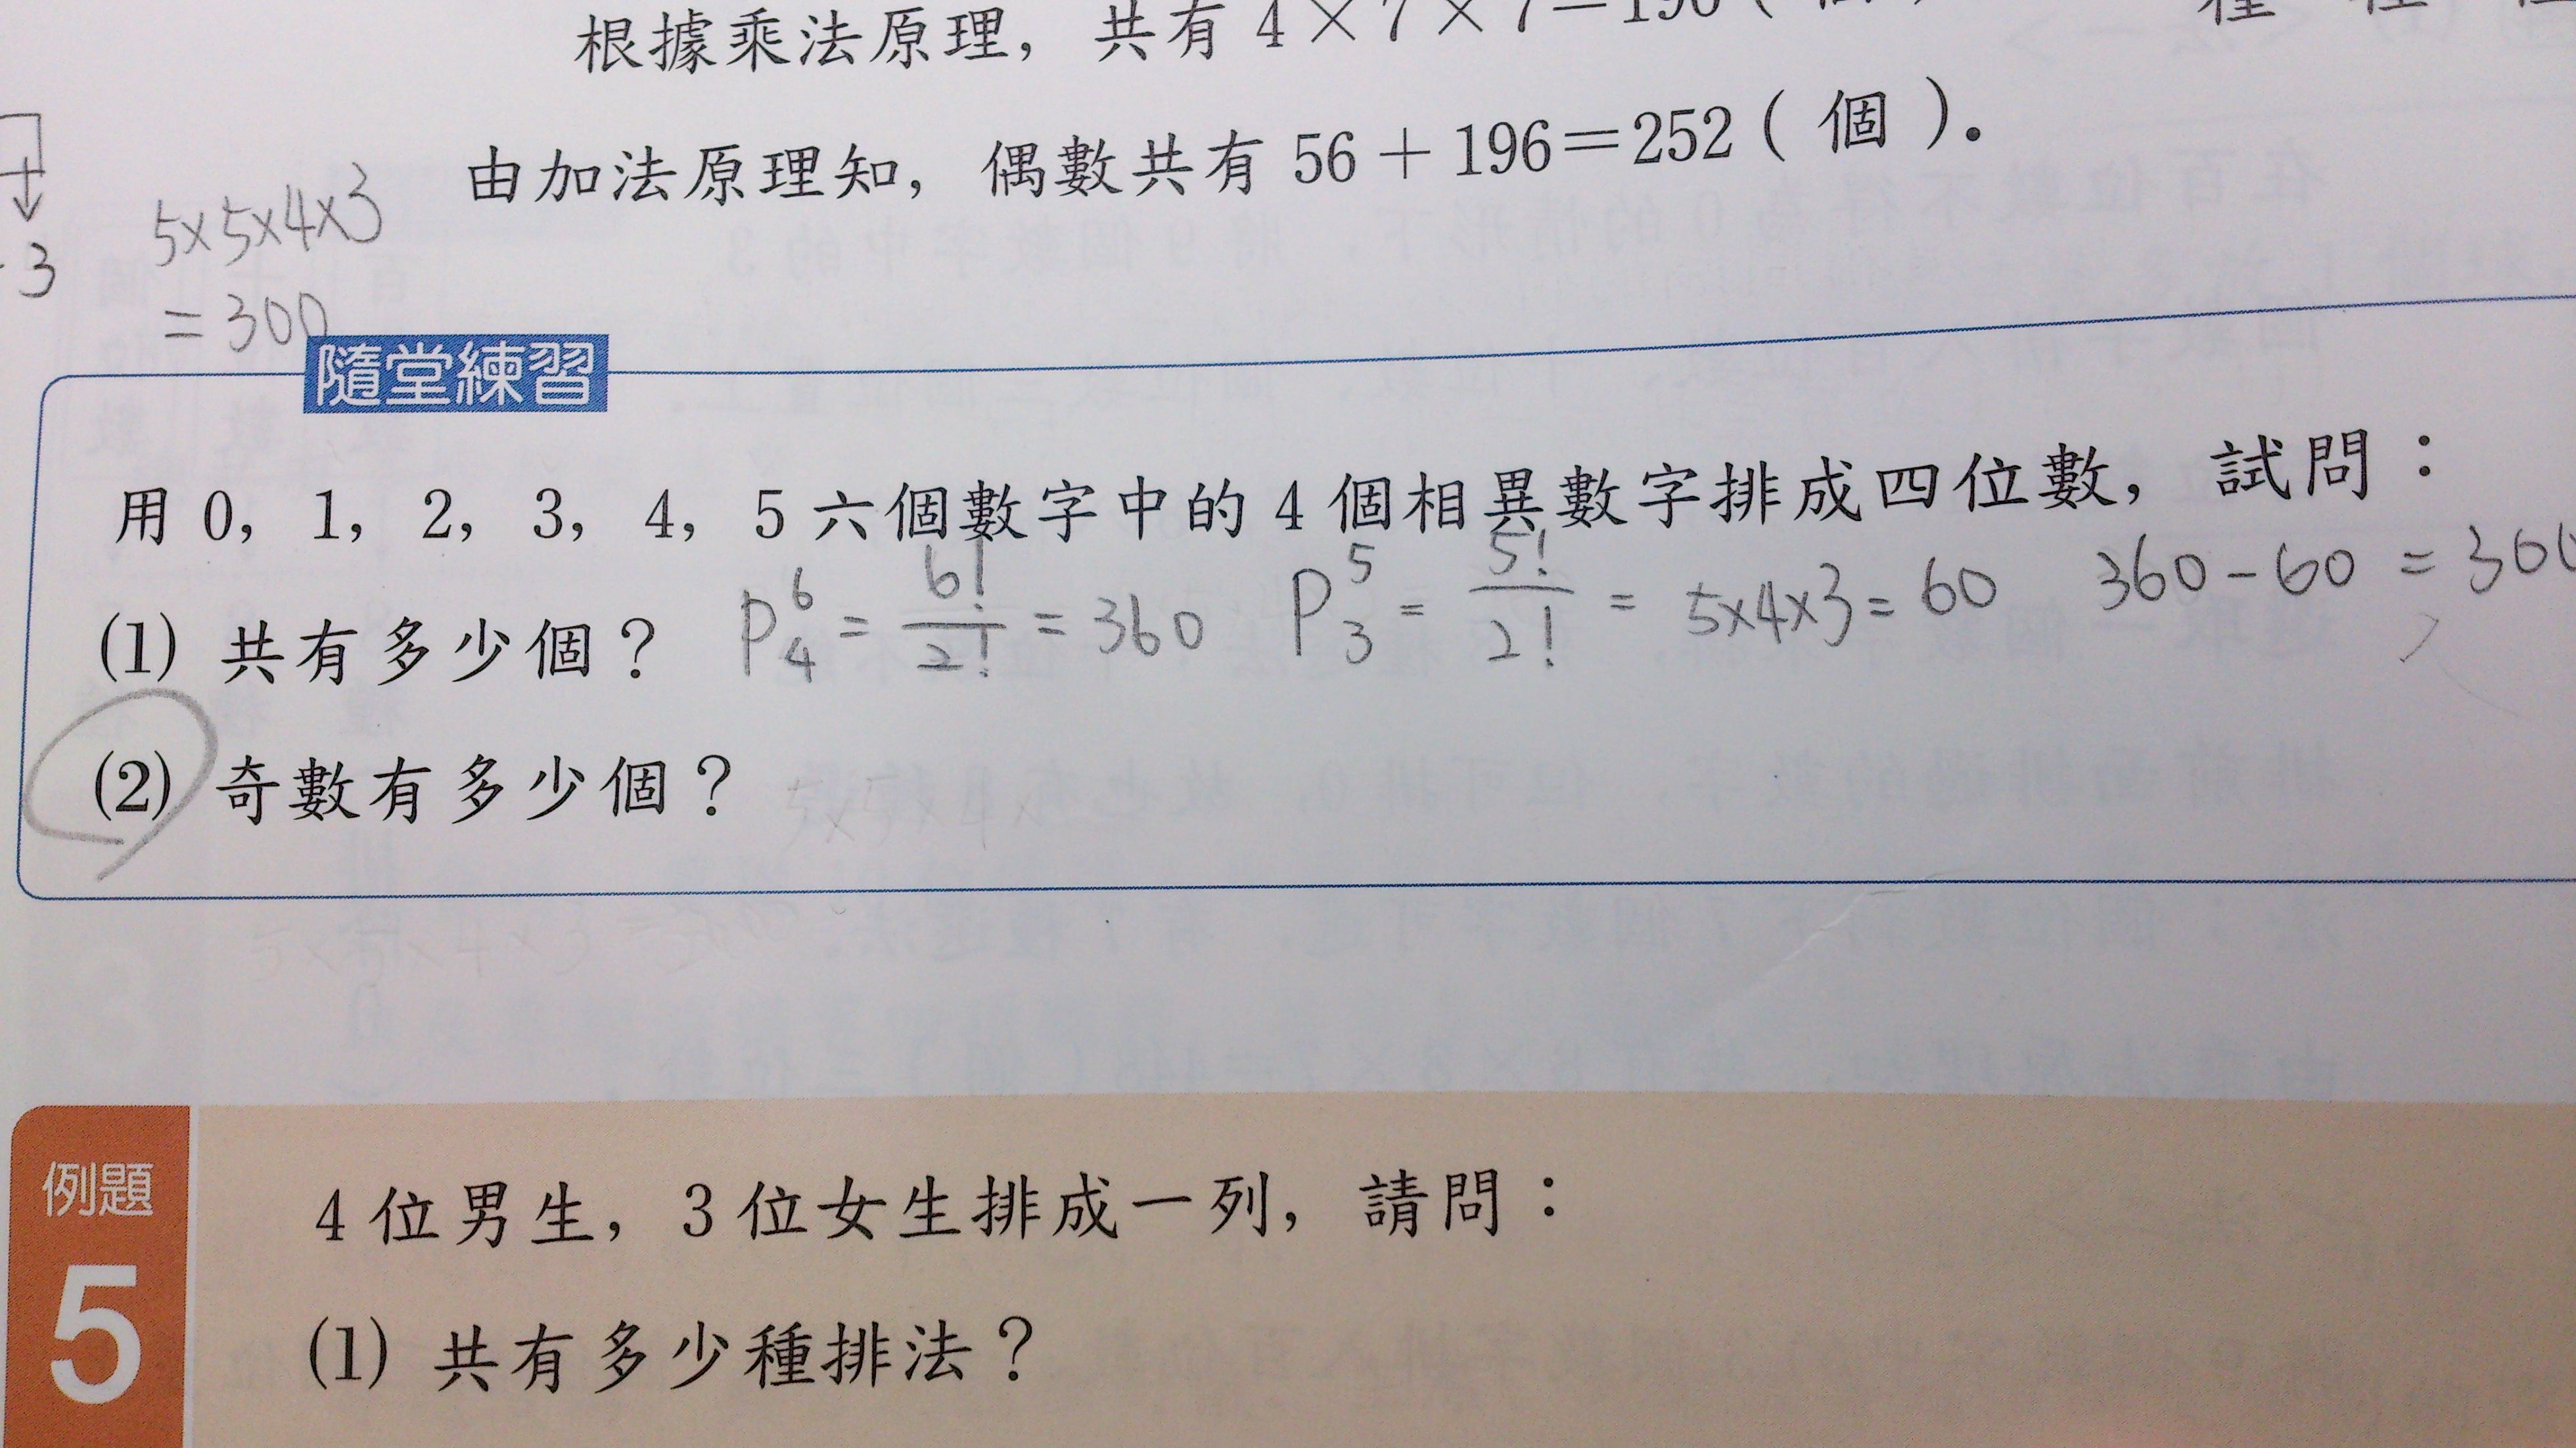 根據乘法原理，共有 4×7×7=196（個）
由加法原理知，偶數共有 56＋196＝252（個）．
3
5×5×4×3
=300
隨堂練習
用 0，1，2，3，4，5 六個數字中的 4 個相異數字排成四位數，試問：
(1) 共有多少個？ P⁶₄ = 6!/2! = 360 P⁵₃ = 5!/2! = 5×4×3 = 60 360-60 = 300
(2) 奇數有多少個？
5×5×4×
例題
5
4 位男生，3 位女生排成一列，請問：
(1) 共有多少種排法？